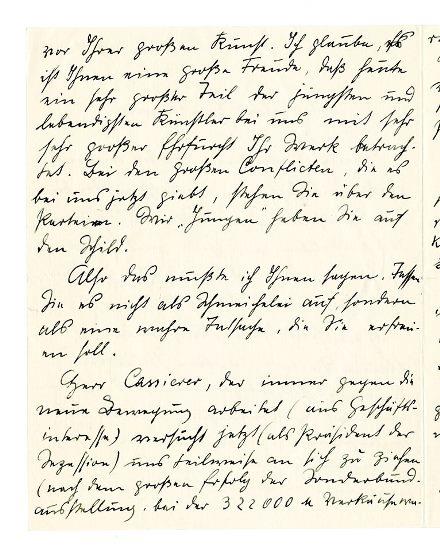 vor Ihrer großen Kunst. Ich glaube, es
ist Ihnen eine große Freude, daß heute
ein sehr großer Teil der jüngsten und
lebendigsten Künstler bei uns mit sehr
sehr großer Ehrfurcht Ihr Werk betrach-
tet. Bei den großen Conflicten, die es
bei uns jetzt giebt, stehen Sie über den
Parteien. Wir „Jungen" heben Sie auf
den Schild.
Also das mußte ich Ihnen sagen. Fassen
Sie es nicht als Schmeichelei auf, sondern
als eine wahre Tatsache, die Sie erfreu-
en soll.
Herr Cassierer, der immer gegen die
neue Bewegung arbeitet (aus Geschäfts-
interesse) versucht jetzt (als Präsident der
Sezession) uns teilweise an sich zu ziehen
(nach dem großen Erfolg der Sonderbund-
ausstellung. bei der 322000 M